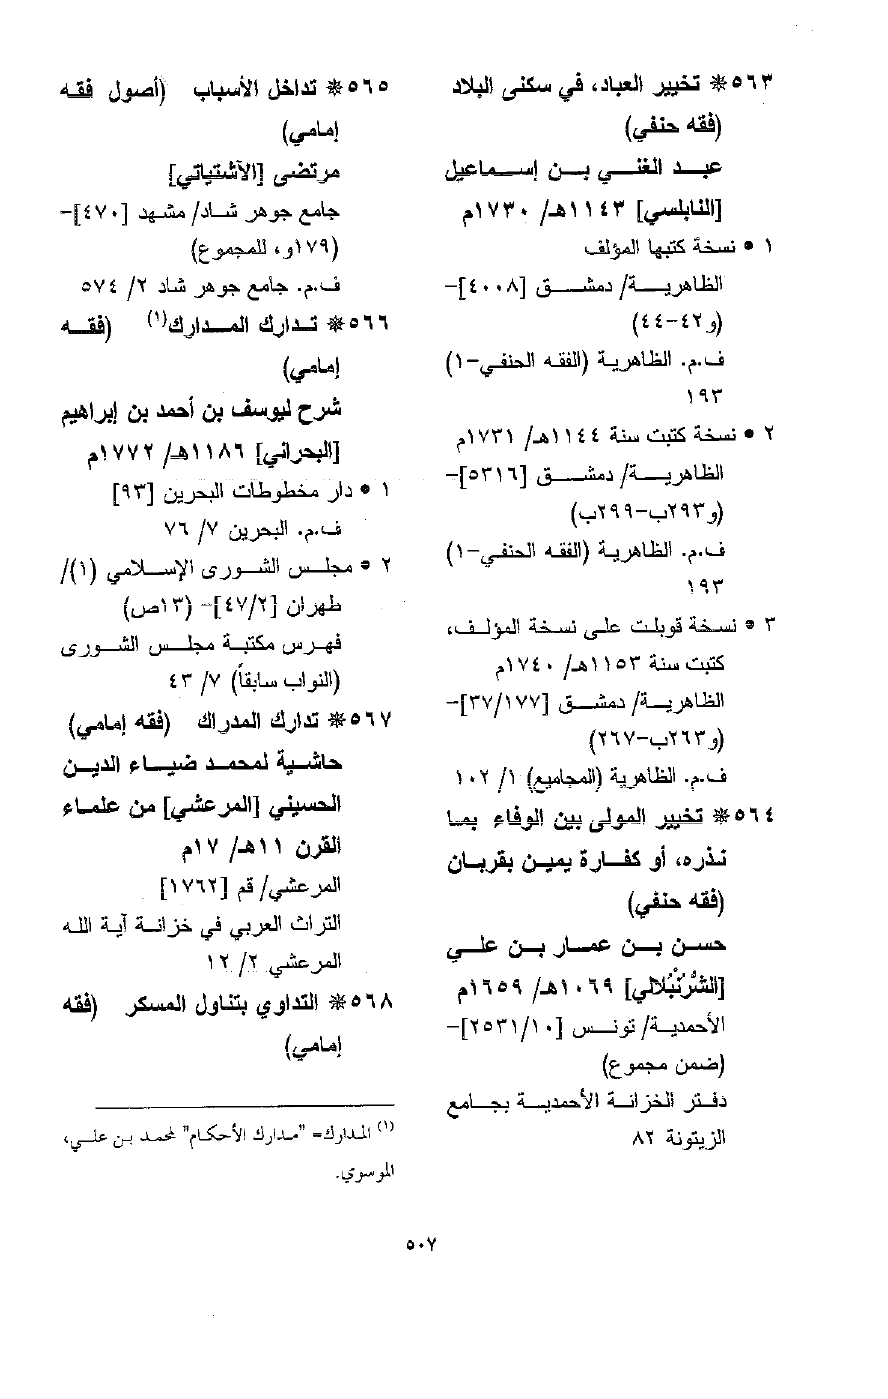 ٥٦٣* تخيير العباد، في سكنى البلاد
(فقه حنفي)
عبد الغني بن إسماعيل
[النابلسي] ١١٤٣هـ/ ١٧٣٠م
١ • نسخة كتبها المؤلف
الظاهرية/ دمشق [٤٠٠٨]-
(و٤٢-٤٤)
ف.م. الظاهرية (الفقه الحنفي-١)
١٩٣
٢ • نسخة كتبت سنة ١١٤٤هـ/ ١٧٣١م
الظاهرية/ دمشق [٥٣١٦]-
(و٢٩٣ب-٢٩٩ب)
ف.م. الظاهرية (الفقه الحنفي-١)
١٩٣
٣ • نسخة قوبلت على نسخة المؤلف،
كتبت سنة ١١٥٣هـ/ ١٧٤٠م
الظاهرية/ دمشق [٣٧/١٧٧]-
(و٢٦٣ب-٢٦٧)
ف.م. الظاهرية (المجاميع) ١/ ١٠٢
٥٦٤* تخيير المولى بين الوفاء بما
نذره، أو كفارة يمين بقربان
(فقه حنفي)
حسن بن عمار بن علي
[الشُرُنْبُلالي] ١٠٦٩هـ/ ١٦٥٩م
الأحمدية/ تونس [٢٥٣١/١٠]-
(ضمن مجموع)
دفتر الخزانة الأحمدية بجامع
الزيتونة ٨٢
٥٦٥* تداخل الأسباب (أصول فقه
إمامي)
مرتضى [الآشتياتي]
جامع جوهر شاد/ مشهد [٤٧٠]-
(١٧٩و، للمجموع)
ف.م. جامع جوهر شاد ٢/ ٥٧٤
٥٦٦* تدارك المدارك(١) (فقه
إمامي)
شرح ليوسف بن أحمد بن إبراهيم
[البحراني] ١١٨٦هـ/ ١٧٧٢م
١ • دار مخطوطات البحرين [٩٣]
ف.م. البحرين ٧/ ٧٦
٢ • مجلس الشورى الإسلامي (١)/
طهران [٤٧/٢]- (١٣ص)
فهرس مكتبة مجلس الشورى
(النواب سابقاً) ٧/ ٤٣
٥٦٧* تدارك المدراك (فقه إمامي)
حاشية لمحمد ضياء الدين
الحسيني [المرعشي] من علماء
القرن ١١هـ/ ١٧م
المرعشي/ قم [١٧٦٢]
التراث العربي في خزانة آية الله
المرعشي ٢/ ١٢
٥٦٨* التداوي بتناول المسكر (فقه
إمامي)
(١) المدارك= "مدارك الأحكام" لمحمد بن علي،
الموسوي.
٥٠٧